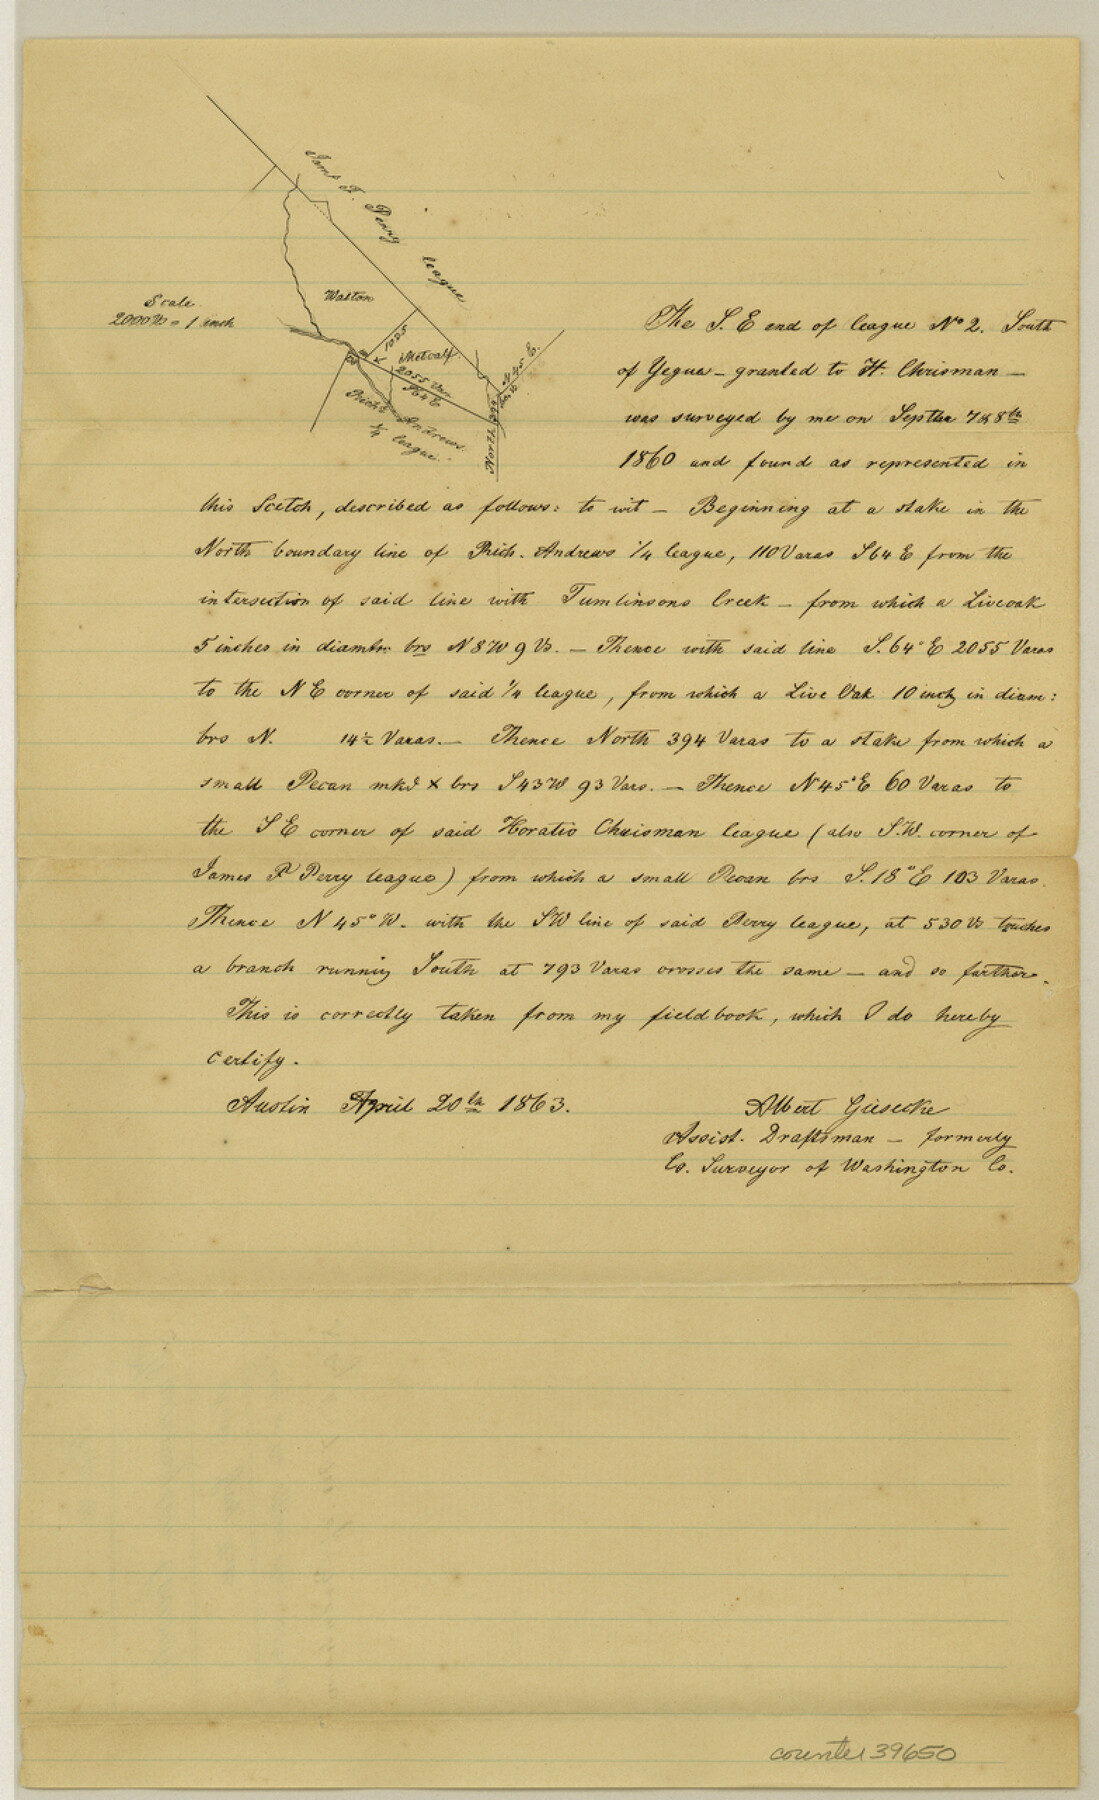 James F. Perry league
Scale
2000 Vs = 1 inch
Walton
1055
Metcalf
2055 Vrs.
S 64 E
N 45 E.
North 394
Richd Andrews
1/4 league
The S. E end of league No 2. South
of Yegua - granted to H. Chrisman -
was surveyed by me on Septber 7 & 8th
1860 and found as represented in
this Scetch, described as follows: to wit - Beginning at a stake in the
North boundary line of Rich. Andrews 1/4 league, 110 Varas S64 E from the
intersection of said line with Tumlinsons Creek - from which a Liveoak
5 inches in diamtr. brs N 8 W 9 Vs. - Thence with said line S. 64° E 2055 Varas
to the N E corner of said 1/4 league, from which a Live Oak 10 inch in diam:
brs N. 14½ Varas. - Thence North 394 Varas to a stake from which a
small Pecan mkd X brs S 43 W 93 Vars. - Thence N 45° E 60 Varas to
the S E corner of said Horatio Chrisman league (also S.W. corner of
James F Perry league) from which a small Pecan brs S. 18° E 103 Varas.
Thence N 45° W. with the SW line of said Perry league, at 530 Vs touches
a branch running South at 793 Varas crosses the same - and so farther.
This is correctly taken from my fieldbook, which I do hereby
certify.
Austin April 20th 1863.
Albert Giesecke
Assist. Draftsman - formerly
Co. Surveyor of Washington Co.
counter 39650